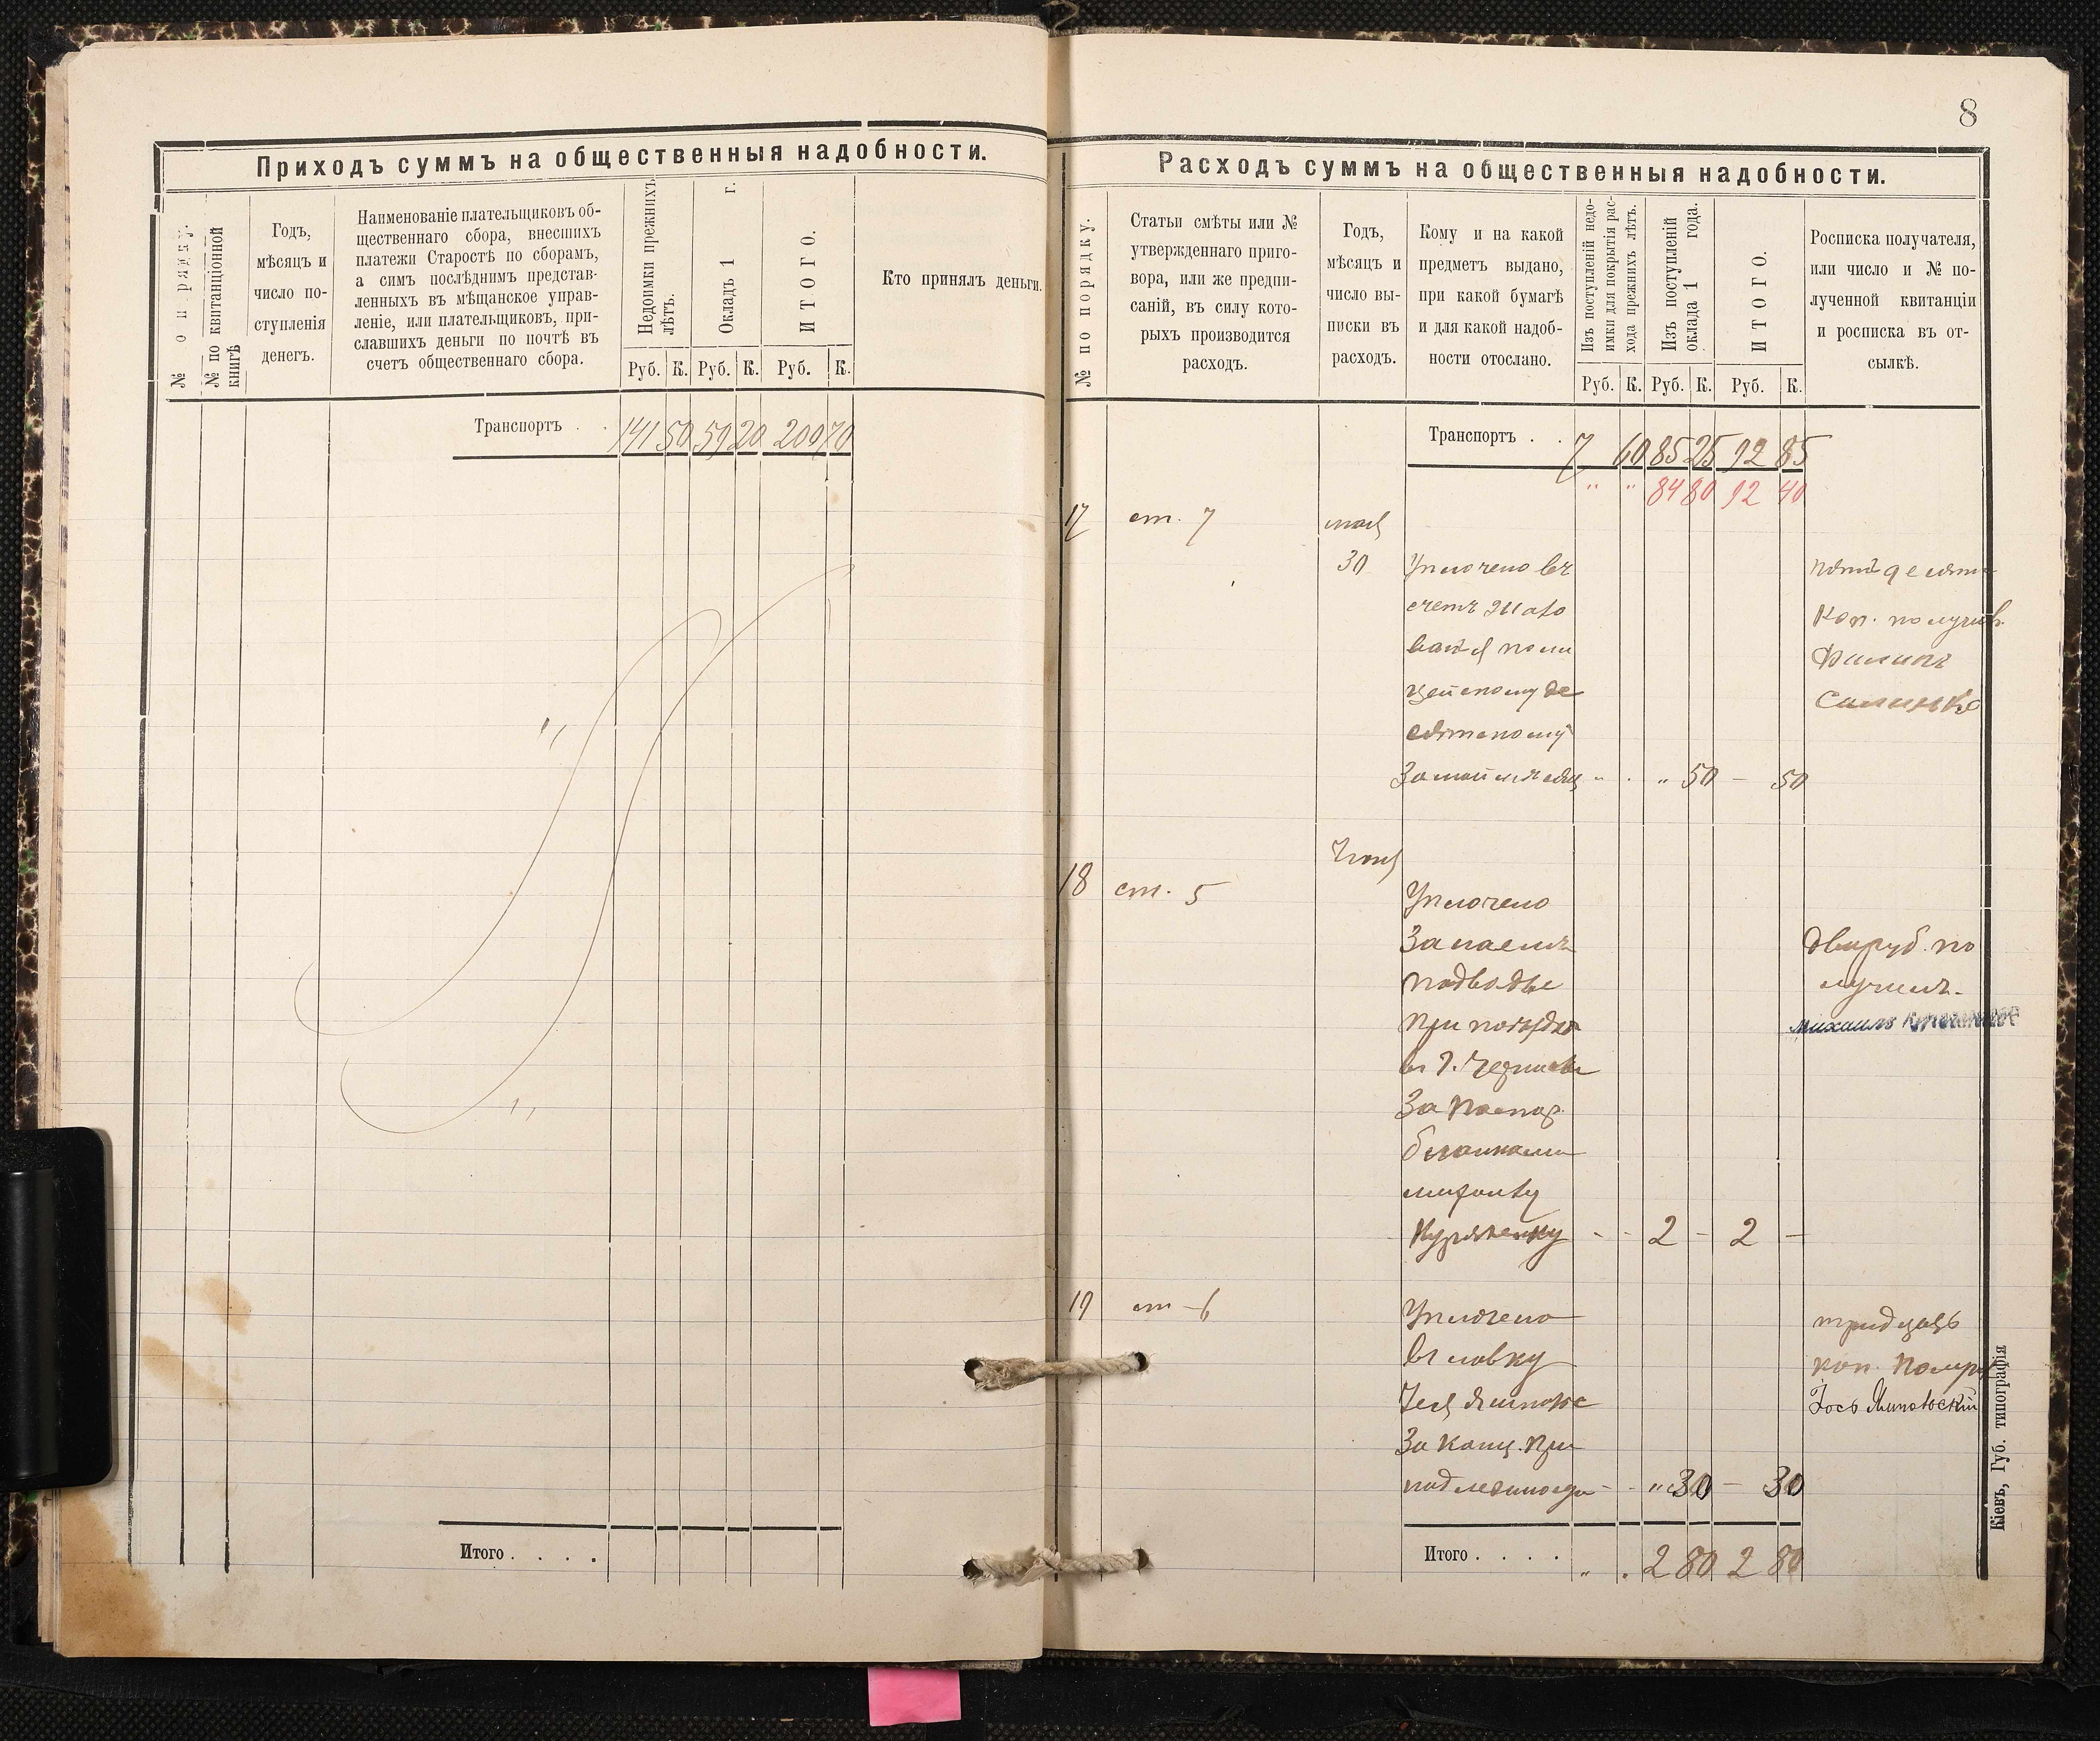 8
Приходъ суммъ на общественныя надобности.
№ по порядку.
№ по квитанціонной
книгѣ
Годъ,
мѣсяцъ и
число по-
ступленія
денегъ.
Наименованіе плательщиковъ об-
щественнаго сбора, внесшихъ
платежи Старостѣ по сборамъ,
а симъ послѣднимъ представ-
ленныхъ въ мѣщанское управ-
леніе, или плательщиковъ, при-
славшихъ деньги по почтѣ въ
счетъ общественнаго сбора.
Недоимки прежнихъ
лѣтъ.
Окладъ 1 г.
ИТОГО.
Кто принялъ деньги.
Руб. К. Руб. К. Руб. К.
Транспортъ . . 141 50 59 20 200 70
Итого . . . .
Расходъ суммъ на общественныя надобности.
№ по порядку.
Статьи смѣты или №
утвержденнаго приго-
вора, или же предпи-
саній, въ силу кото-
рыхъ производится
расходъ.
Годъ,
мѣсяцъ и
число вы-
писки въ
расходъ.
Кому и на какой
предметъ выдано,
при какой бумагѣ
и для какой надоб-
ности отослано.
Изъ поступленій недо-
имки для покрытія рас-
хода прежнихъ лѣтъ.
Изъ поступленій
оклада 1 года.
ИТОГО.
Росписка получателя,
или число и № по-
лученной квитанціи
и росписка въ от-
сылкѣ.
Руб. К. Руб. К. Руб. К.
Транспортъ . . 7 60 85 25 92 85
" " 84 80 92 40
17 ст. 7 мая
30 Уплочено въ
счетъ жало
ванья поли
цейскому де
сятскому
За май мѣсяц " . " 50 — 50
пятьдесять
коп. получив.
Филипъ
18 ст. 5
Уплочено
За наемъ
подводы
При поѣздке
въ г.
За Паспор.
бланками
2 — 2 —
Два руб. по
лучилъ.
Михаилъ
19 ст — 6 Уплочено
въ лавку
За канц. При
надлежности — - " 30 — 30
тридцать
коп.
Итого . . . . " . 2 80 2 80
Кіевъ, Губ. типографія